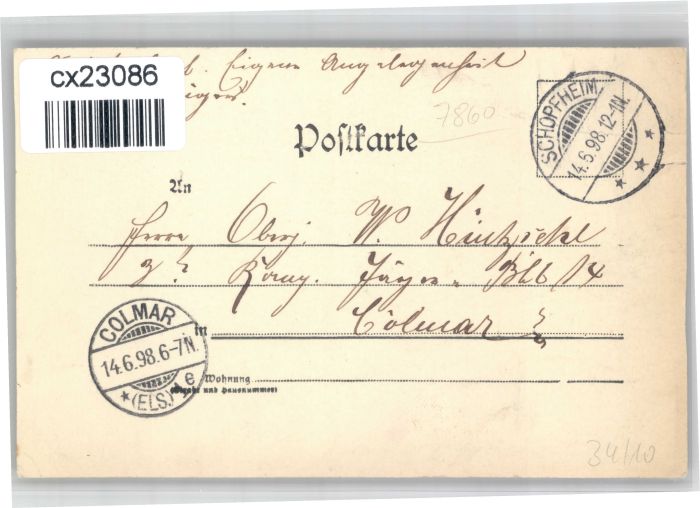 cx23086
Eigene Angelegenheit
7860
Postkarte
SCHOPFHEIM
14.6.98.12-1N.
An
Herrn Oberj. W. Hintzsckel
2. Komp. Jäger- Btl. 14
Colmar
in
COLMAR
14.6.98.6-7N.
(ELS.)
e
Wohnung
(Straße und Hausnummer)
34/10